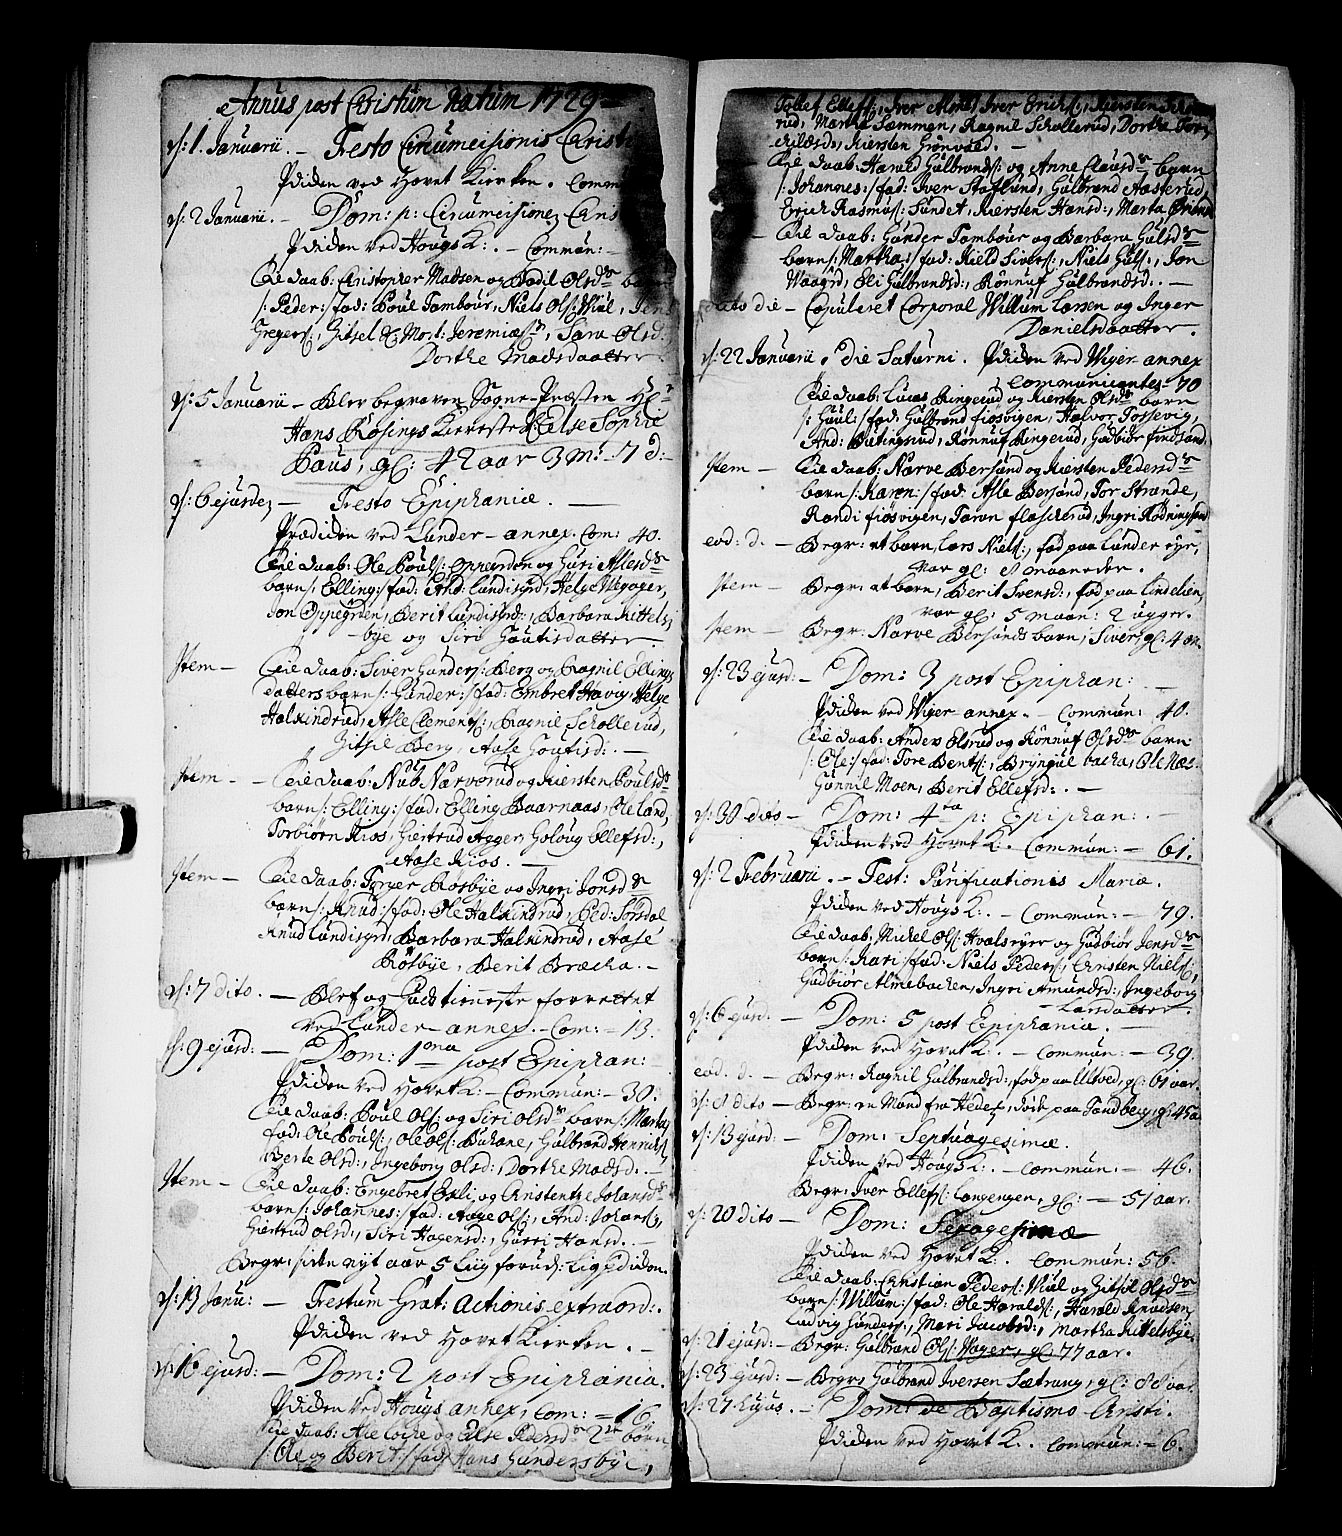 Annus post Christum natum 1729
d: 1. Januarii. – Festo Circumcisionis Christi
Pdiden ved Hovet Kierken. Comm
d: 2 Januarii. – Dom: p: Circumcisione Chris
Pdiden ved Hougs K: – Commun: –
Ead daab: Christopher Madsen og Bodil Olsdr barn
/: Peder :/ fad: Poul Tambour, Niels Ols: Wiul, Jens
Gregers:, Zitsel Mort: Jeremiæs:, Sara Olsd:
Dorthe Madsdaatter.
d: 5 Januarii – Blev begraven Sogne-Præsten Hr
Hans Røsings Kiereste Else Sophie
Paus, gl: 42 aar 3 m: 7 d:
d: 6 ejusdem – Festo Epiphaniæ.
Prædiken ved Lunder – annex. Com: 40.
daab: Ole Pouls: Oppegorden og Guri Allesdr
barn /: Elling :/ fad: And: Lundisgrd, Helge Wegager,
Jon Oppegrden, Berit Lundisgrd:, Barbara Kittels-
bye og Siri Goutisdatter
Item – daab: Siver Gunders: Berg og Ragnil Ellings
datters barn /: Gunder :/ fad: Embret Havig, Helge
Halkindrud, Alle Clements:, Ragnil Scholle rud,
Zitsil Berg, Aase Goutisd: –
Item – daab: Nub Narverud og Kiersten Poulsdr
barn /: Elling :/ fad: Elling Baarnaas, Ole Land,
Torbiørn Kios, Giertrud Ægger, Goloug Ellefsd:,
Aase Kios. –
Item – daab: Torger Røsbye og Ingri Jonsdr
barn /: Knud :/ fad: Ole Halkindrud, Ped: Sørsdal
Knud Lundisgrd, Barbara Halkindrud, Aase
Røsbye, Berit Bræcka. –
d: 7 dito. – Blef og Gudstieneste forrettet
ved Lunder – annex. – Com: – 13.
d: 9 ejusd: – Dom: 1ma post Epiphan:
Pdiden ved Hovet K: – Commun: – 30.
daab: Poul Ols: og Siri Olsdr barn /: Marta
fad: Ole Pouls:, Ole Ols: Buhane, Gulbrand Henrichs:
Berte Olsd:, Ingeborg Olsd:, Dorthe Madsd. –
Item – daab: Engebret Exli, og Christentze Johansdr
barn /: Johannes :/ fad: Aage Ols:, And: Johans:,
Giertrud Olsd:, Siri Hagensd:, Gurri Hansd. –
Begr: siden nyt aar 5 Liig foruds: Liigpdiden.
d: 13 Janu: – Festum Grat: Actionis extraord:.
Pdiden ved Hovet Kierken. –
d: 16 ejusd: – Dom: 2 post Epiphania.
Pdiden ved Hougs annex, Com: – 16.
daab: Alle og Else Pedersdr 2de børn
/: Ole og Berit :/ fad: Hans Gundersbye,
Tollef Ellefs:, Iver Mons: Iver Erichs:, Kiersten Schol
rud, Marthe Sammen, Ragnil Schollerud, Dorthe Tor-
childsd:, Kiersten Grønvold. –
daab: Harald Gulbrands: og Anne Clausdr barn
/: Johannes :/ fad: Iven Staflund, Gulbrand Aasterud,
Erich Rasmus: Sundet, Kiersten Hansd:, Marta
– daab: Gunder Tambour og Barbara Gulsdr
barn /: Martha :/ fad: Kield Sivers:, Niels Guls:, Jon
Waagrd, Eli Gulbrandsd:, Rønnuf Gulbrandsd: –
dito die – Copuleret Corporal Willum Larsen og Inger
Danielsdaatter.
d: 22 Januarii, die Saturni. Pdiden ved Wiger-annex
Communicantes – 70
daab: Lucas Ringerud og Kiersten Olsdr barn
/: Guul :/ fad: Gulbrand Fiosvigen, Halvor Tossevig,
And: Bætingsrud, Rønnuf Ringerud, Gudbiør Findsand
Item – daab: Narve Bersund og Kiersten Pedersdr
barn /: Karen :/ fad: Asle Bersund, Tor Strande,
Randi Fiosvigen, Taran Flaskerud, Ingri Rødningsand
eod: d. – Begr: et barn, Lars Niels:, fød paa Lunder eyr,
var gl: 8 maaneder.
Item – Begr: et barn, Berit Svensd:, fød paa Lindelien,
var gl: 5 maan: 2 uger.
Item – Begr: Narve Bersunds barn, Siver, gl: 4 an.
d: 23 ejusd: – Dom: 3 post Epiphan: –
Pdiden ved Wiger annex. – Commun: 40.
daab: Anders Olsrud og Rønnuf Olsdr barn
/: Ole :/ fad: Tore Bents:, Bryngul backa, Ole Næs
Gunnil Moen, Berit Ellefsd: –
d: 30 dito – Dom: 4ta p: Epiphan: –
Pdiden ved Hovet K. Commun: – 61.
d: 2 Februarii. – Fest: Purificationis Mariæ.
Pdiden ved Hougs K: – Commun: – 79.
daab: Mickel Ols: Hvals eyer og Gudbiør Jensdr
barn /: Kari :/ fad: Niels Peders:, Christen Niels:,
Gudbiør Almebacken, Ingri Amundsd:, Ingeborg
Larsdatter.
d: 6 ejusd: – Dom: 5 post Epiphania. –
Pdiden ved Hovet K: – Commun: – 39.
eod: d. – Begr: Ragnil Gulbrandsd:, fød paa Ulsved, gl: 61 aar.
d: 8 dito – Begr: en Mand fra Hedes, døde paa Tandberg, gl: 45 a
d: 13 ejusd: – Dom: Septuagesimæ.
Pdiden ved Hougs K: – Commun: – 46.
Begr: Iver Ellefs: Langengen, gl: – 51 aar.
d: 20 dito – Dom: Sexagesimæ
Pdiden ved Hovet K. Commun: 56.
daab: Christian Peders: Wiul og Zitsil Olsdr
barn /: Willum :/ fad: Ole Haralds:, Harald Knudsen,
Ludvig Gunders:, Mari Jacobsd:, Martha Kittelsbye
d: 21 ejusd: – Begr: Gulbrand Ols: Wager, gl: 77 aar.
d: 23 ejusd: – Begr: Gulbrand Iversen Sætrang, gl: 88 aar
d: 27 hujus. – Dom: de Baptismo Christi.
Pdiden ved Hovet K. Commun: – 6.